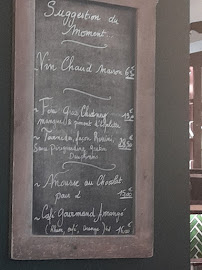 Suggestion du
Moment
Vin Chaud maison 6€
~ Foie Gras Chutney
mangue & piment d'Espelette
~ Tournedos façon Rossini,
Sauce Périgourdine, Gratin
Dauphinois
~ Mousse au Chocolat
pour 2
~ Café Gourmand
Rhum, café, orange